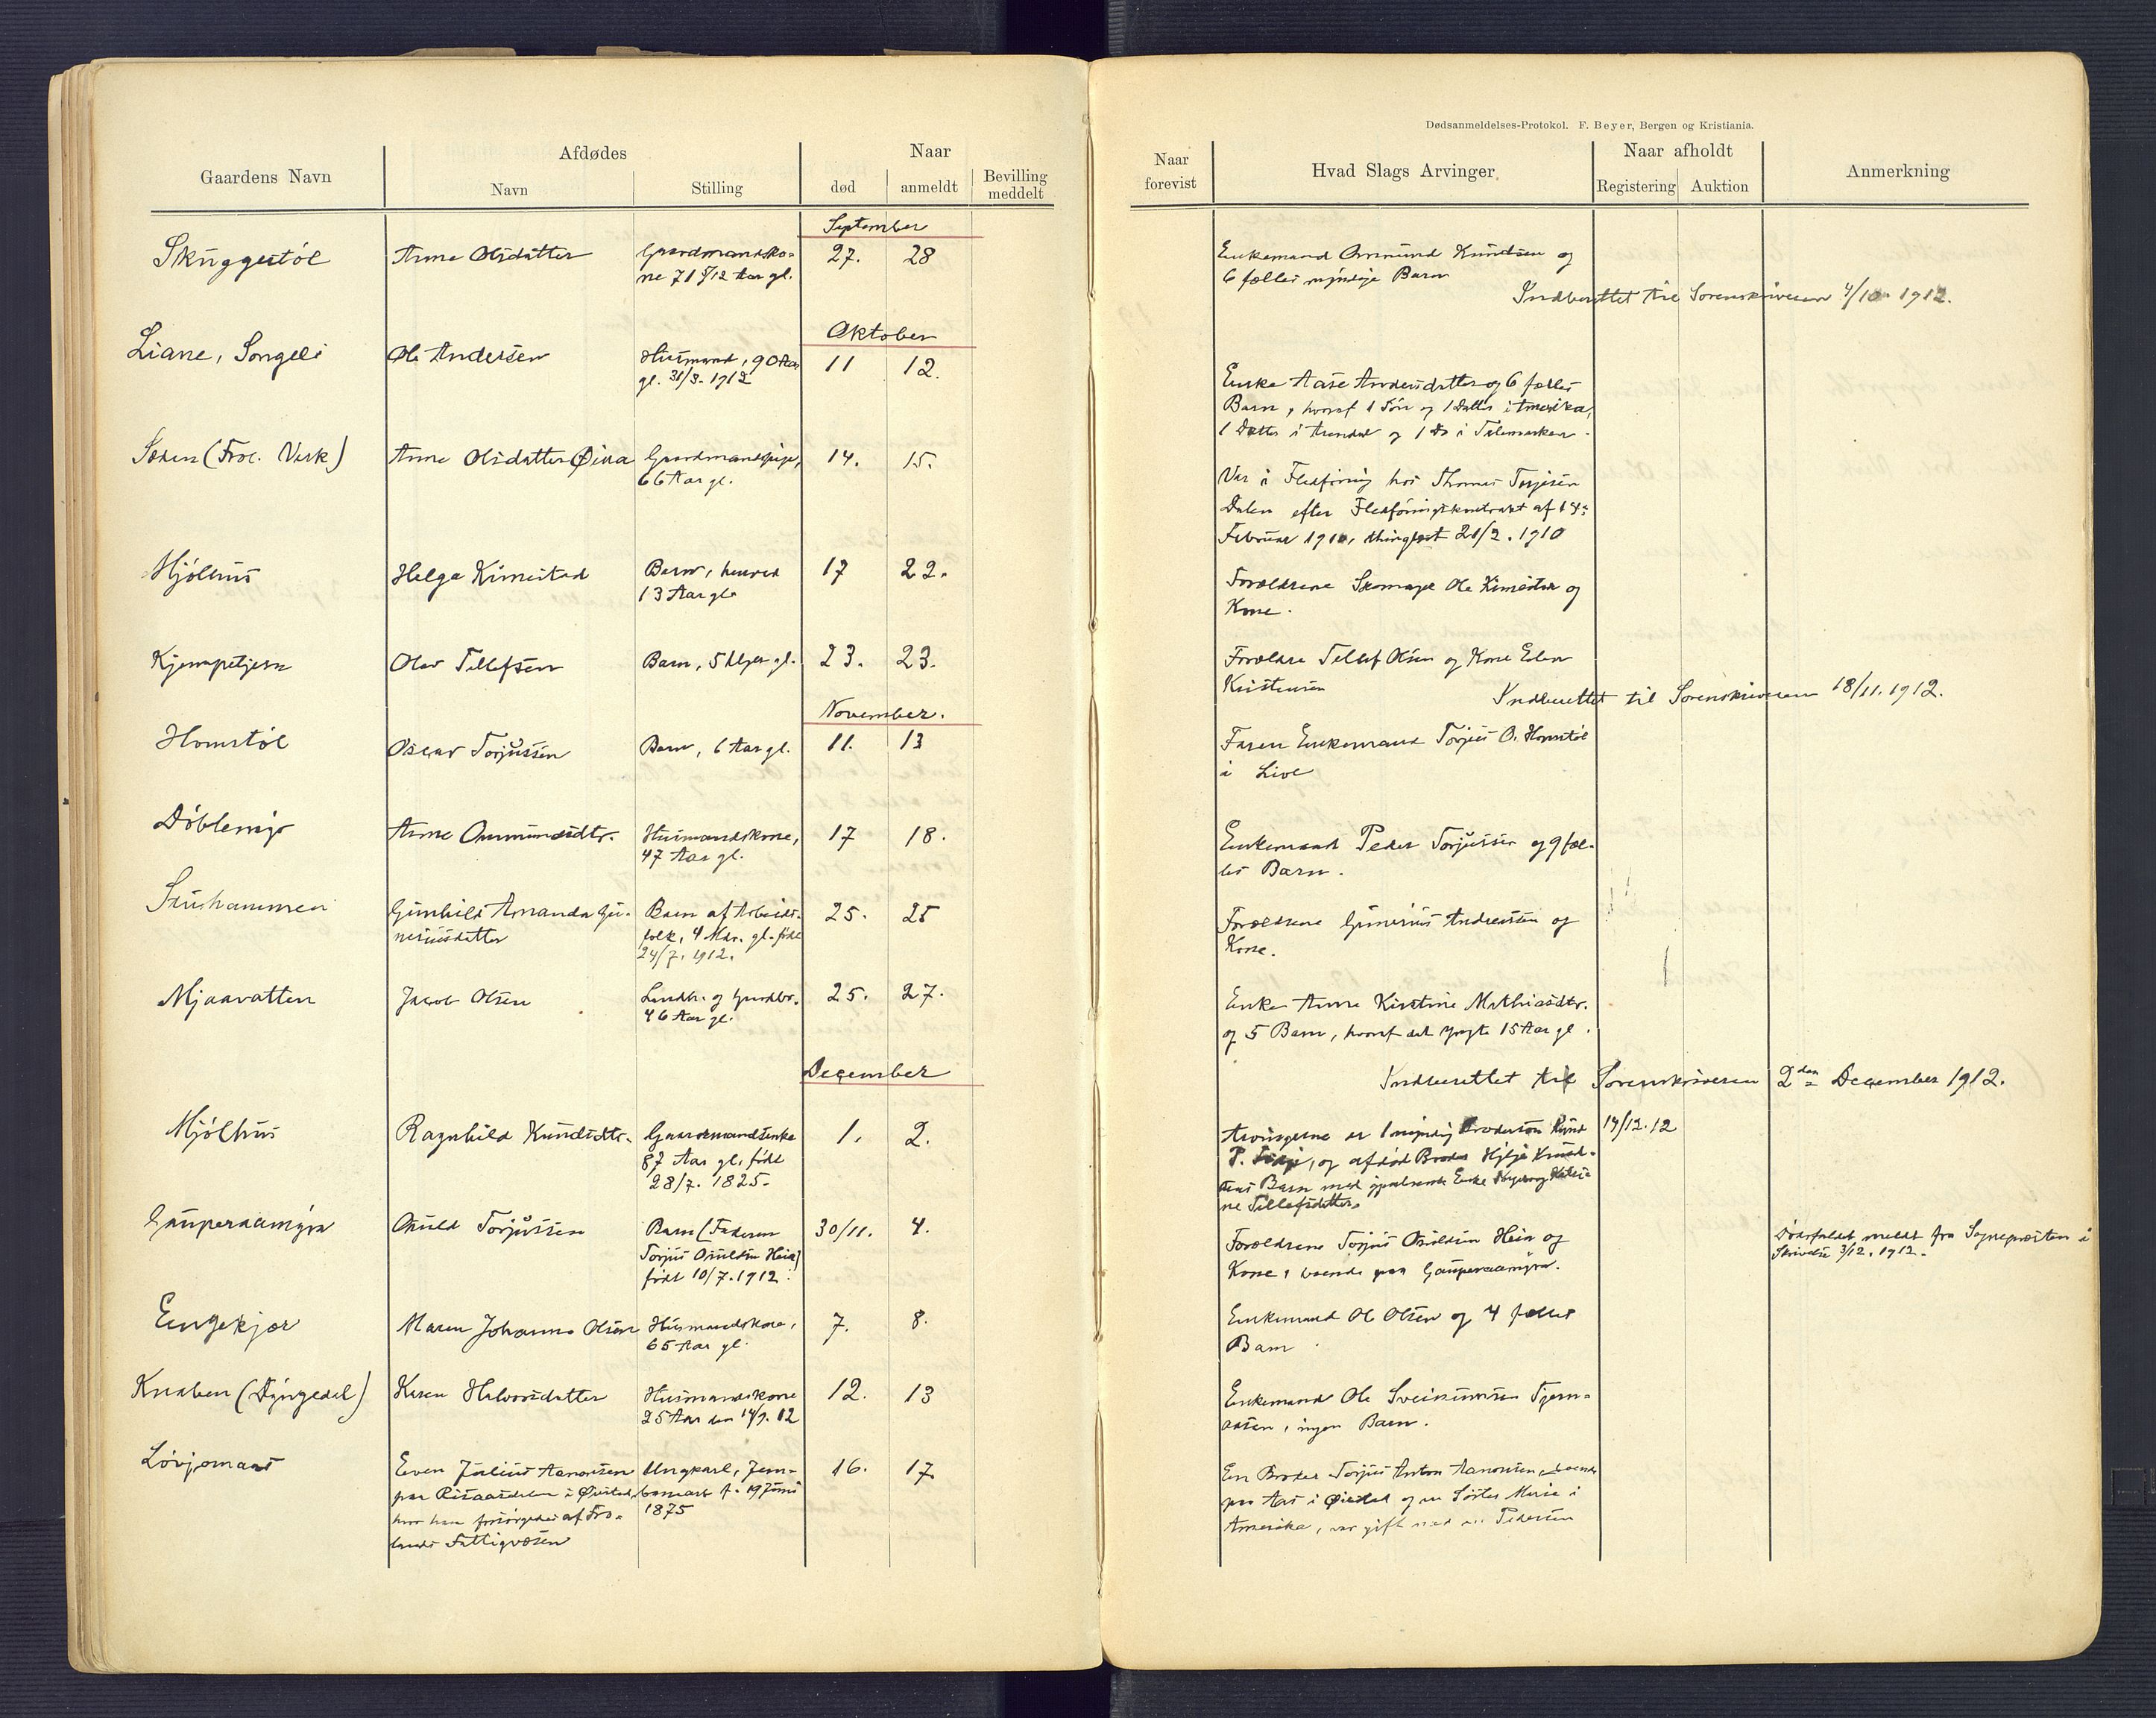 Dødsanmeldelses-Protokol. F. Beyer, Bergen og Kristiania.
Gaardens Navn
Afdødes
Navn
Stilling
Naar
død
anmeldt
Bevilling
meddelt
Naar
forevist
Hvad Slags Arvinger
Naar afholdt
Registering
Auktion
Anmerkning
September
Skuggestøl
Anne Olsdatter
Gaardmandsko-
ne 71 5/12 Aar gl.
27.
28
Enkemand Omund Knudsen og
6 fælles myndige Barn
Indberettet til Sorenskriveren 4/10. 1912.
Oktober
Liane, Songeli
Ole Andersen
Husmand, 90 Aar
gl. 31/3. 1912
11
12.
Enke Aase Andersdatter og 6 fælles
Barn, hvoraf 1 Søn og 1 Datter i Amerika,
1 Datter i Arendal og 1 Do i Telemarken.
(Frol. Verk)
Anne Olsdatter Øina
Gaardmandspige,
66 Aar gl.
14.
15.
Var i Fledføring hos Thomas Terjesen
Dalen efter Fledføringskontrakt af 14:
Februar 1910, thinglæst 21/2. 1910
Mjølhus
Helga Kimestad
Barn, henved
13 Aar gl.
17
22.
Forældrene Skomager Ole Kimestad og
Kone.
Kjempetjern
Olav Tellefsen
Barn, 5 Uger gl.
23.
23.
Forældre Tellef Olsen og Kone Elen
Kristensen
Indberettet til Sorenskriveren 18/11. 1912.
November.
Homstøl
Oscar Torjussen
Barn, 6 Aar gl.
11.
13
Faren Enkemand Torjus O. Homstøl
i Live
Døblemyr
Anne Ommundsdtr.
Husmandskone,
47 Aar gl.
17
18.
Enkemand Peder Torjussen og 9 fæl-
les Barn.
Stuehammeren
Gunhild Amanda Gu-
neriusdatter
Barn af Arbeids-
folk, 4 Mdr. gl. født
24/7. 1912.
25.
25
Forældrene Gunerius Andreassen og
Kone.
Mjaavatten
Jacob Olsen
Landh. og Gaardbr.
46 Aar gl.
25.
27.
Enke Anne Kirstine Mathiasdtr.
og 5 Barn, hvoraf det yngste 15 Aar gl.
December
Indberettet til Sorenskriveren 2den December 1912.
Mjølhus
Ragnhild Knudsdtr.
Gaardmandsenke
87 Aar gl. født
28/7. 1825.
1.
2.
Arvingerne er 1 myndig Brodersøn Knud
P. , og afdød Broder Knud-
sens Barn med gjenlevende Enke
ne Tellefsdatter.
14/12. 12
Gauperaamyra
Osuld Torjussen
Barn (Faderen
Torjus Osuldsen Heia)
født 10/7. 1912.
30/11.
4.
Forældrene Torjus Osuldsen Heia og
Kone, boende paa Gauperaamyra.
Dødsfaldet meldt fra Sognepræsten i
Skrivelse 3/12. 1912.
Engekjær
Maren Johanne Olsen
Husmandskone,
65 Aar gl.
7.
8.
Enkemand Ole Olsen og 4 fælles
Barn
Knaben (Dyngedal)
Karen Halvorsdatter
Husmandskone
25 Aar den 14/9. 12
12.
13
Enkemand Ole Sveinunsen Tjern-
aasen, ingen Barn.
Løvjomaas
Even Julius Aanonsen
paa Risaasdalen i Øiestad,
hvor han forsørgedes af Fro-
lands Fattigvæsen
Ungkarl, Jern-
banearb. f. 19 Juni
1875
16.
17.
En Broder Torjus Anton Aanonsen, boende
paa Aas i Øiestad og en Søster Marie i
Amerika, var gift med en Pedersen